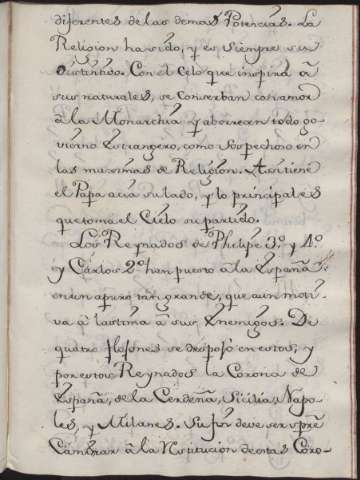 diferentes de las demas Potencias. La
Religion ha sido, y es siempre su
Distintibo. Con el Celo que inspira â
sus naturales, se conserban con amor
â la Monarchia y aborrecen todo go-
vierno Estrangero, como Sospechoso en
las maximas de Religion. Assi tiene
el Papa acia su lado, y lo principal es
que toma el Cielo su partido.
Los Reynados de Phelipe 3º. y 4º.
y Carlos 2º han puesto â la España
en un apuro tan grande, que aun moti-
va â lastima â sus Enemigos. De
quatro florones se despojó en estos, y
por estos Reynados la Corona de
España, de la Cerdeña, Sicilia, Napo-
les, y Milanes. Su fin deve ser spre
Caminar â la Restitucion de estas Coro-